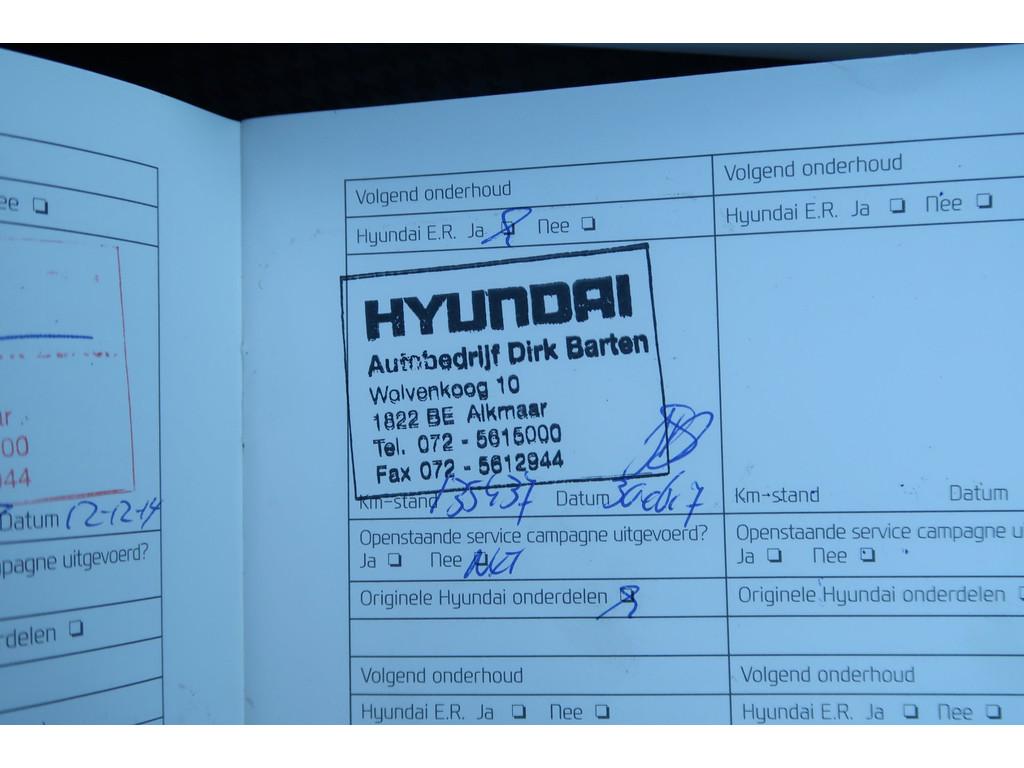 ee
ar
00
944
Datum 12-12-14
pagne uitgevoerd?
rdelen
Volgend onderhoud
Hyundai E.R. Ja Nee
HYUNDAI
Autobedrijf Dirk Barten
Wolvenkoog 10
1822 BE Alkmaar
Tel. 072 - 5615000
Fax 072 - 5612944
Km-stand 135437 Datum
Openstaande service campagne uitgevoerd?
Ja Nee
Originele Hyundai onderdelen
Volgend onderhoud
Hyundai E.R. Ja Nee
Volgend onderhoud
Hyundai E.R. Ja Nee
Km-stand Datum
Openstaande service campagne u
Ja Nee
Originele Hyundai onderdelen
Volgend onderhoud
Hyundai E.R. Ja Nee